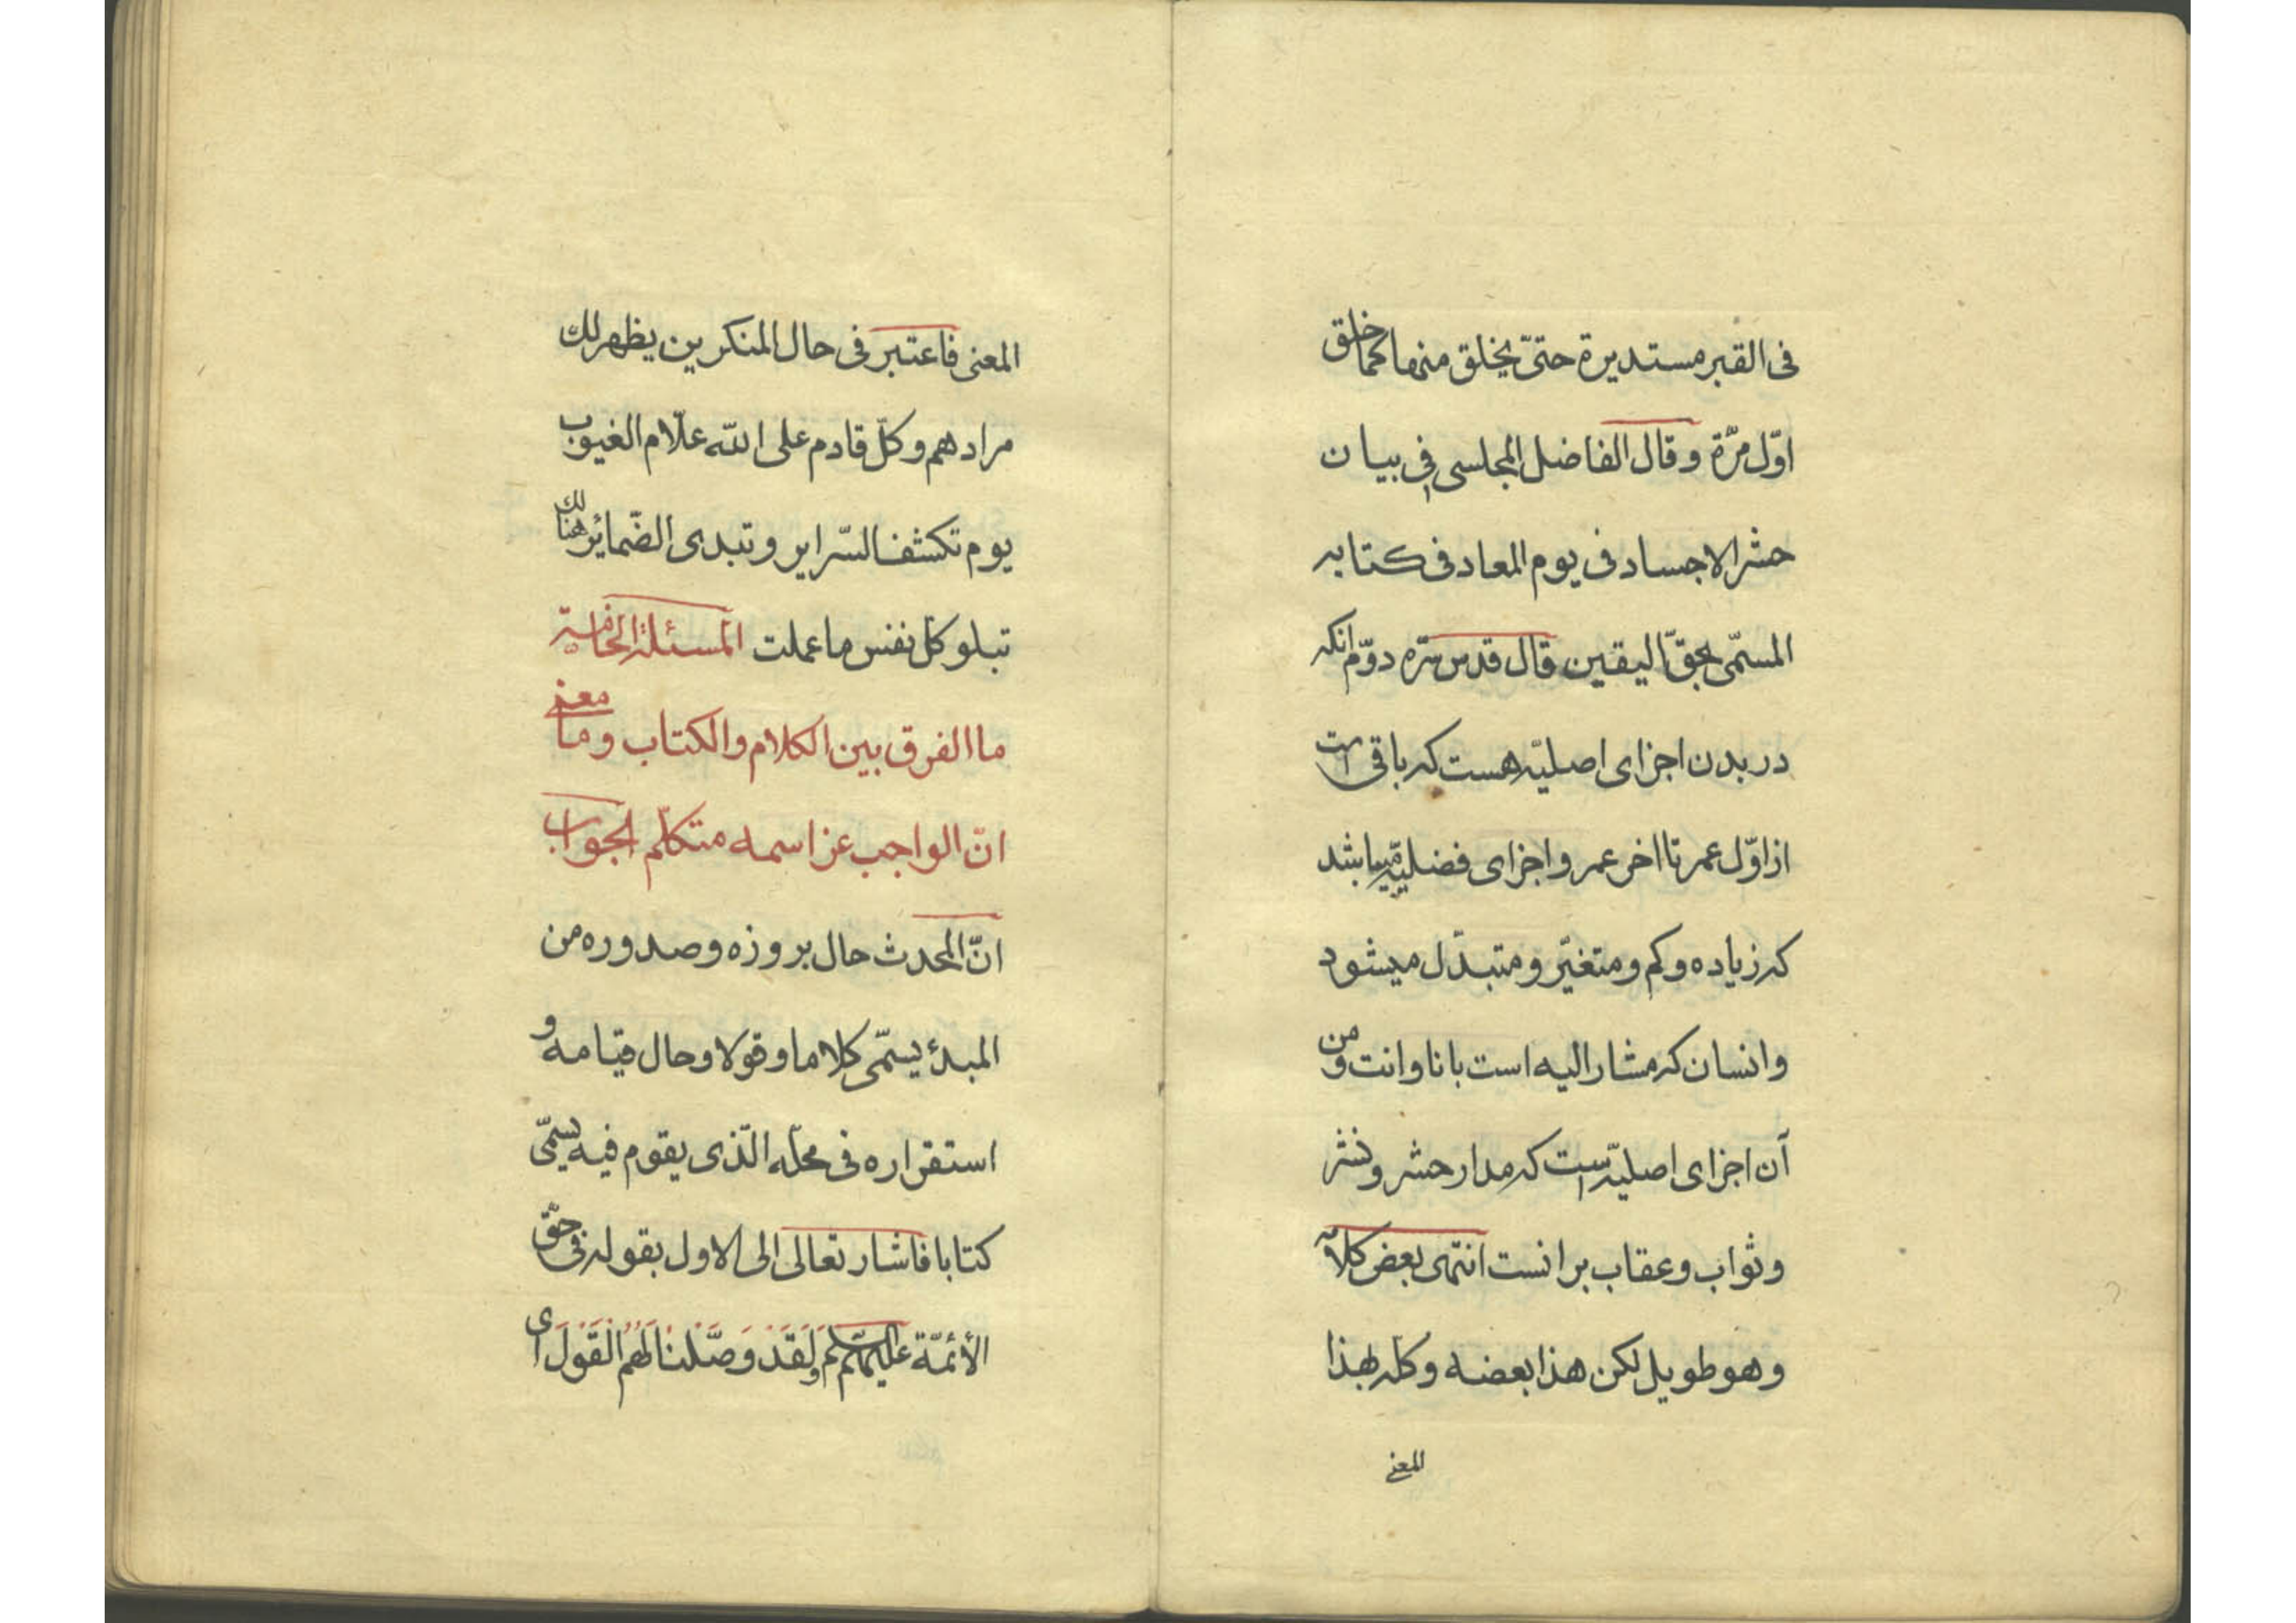 فی القبر مستدیرة حتّی یخلق منها کما خلق
اوّل مرّة وقال الفاضل المجلسی فی بیان
حشر الاجساد فی یوم المعاد فی کتابه
المسمّی بحقّ الیقین قال قدس سرّه دوّم انکه
در بدن اجزای اصلیّه هست که باقی است
از اوّل عمر تا اخر عمر و اجزای فضلیّه میباشد
که زیاده و کم و متغیّر و متبدّل میشود
و انسان که مشار الیه است بانا و انت و من
آن اجزای اصلیّه است که مدار حشر و نشر
و ثواب و عقاب بر انست انتهی بعض کلامه
وهو طویل لکن هذا بعضه وکله بهذا
المعنی
المعنی فاعتبر فی حال المنکرین یظهر لك
مرادهم وکلّ قادم علی الله علّام الغیوب
یوم تکشف السّرایر و تبدی الضّمائر هنالك
تبلو کل نفس ما عملت المسئلة الخامسة
ما الفرق بین الکلام والکتاب وما معنی
انّ الواجب عز اسمه متکلّم الجواب
انّ المحدث حال بروزه وصدوره من
المبدء یسمّی کلاما وقولا وحال قیامه و
استقراره فی محلّه الّذی یقوم فیه یسمّی
کتابا فاشار تعالی الی الاول بقوله فی حقّ
الأئمّة علیهم السّلم وَلَقَدْ وَصَّلْنَا لَهُمُ الْقَوْلَ ای